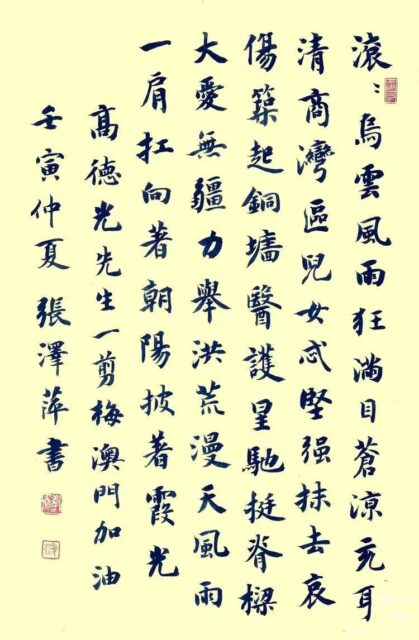 滾〻烏雲風雨狂滿目蒼涼充耳
清商灣區兒女忒堅强抹去哀
傷築起銅墻醫護星馳挺脊樑
大愛無疆力舉洪荒漫天風雨
一肩扛向著朝陽披著霞光
高德光先生一剪梅澳門加油
壬寅仲夏張澤萍書